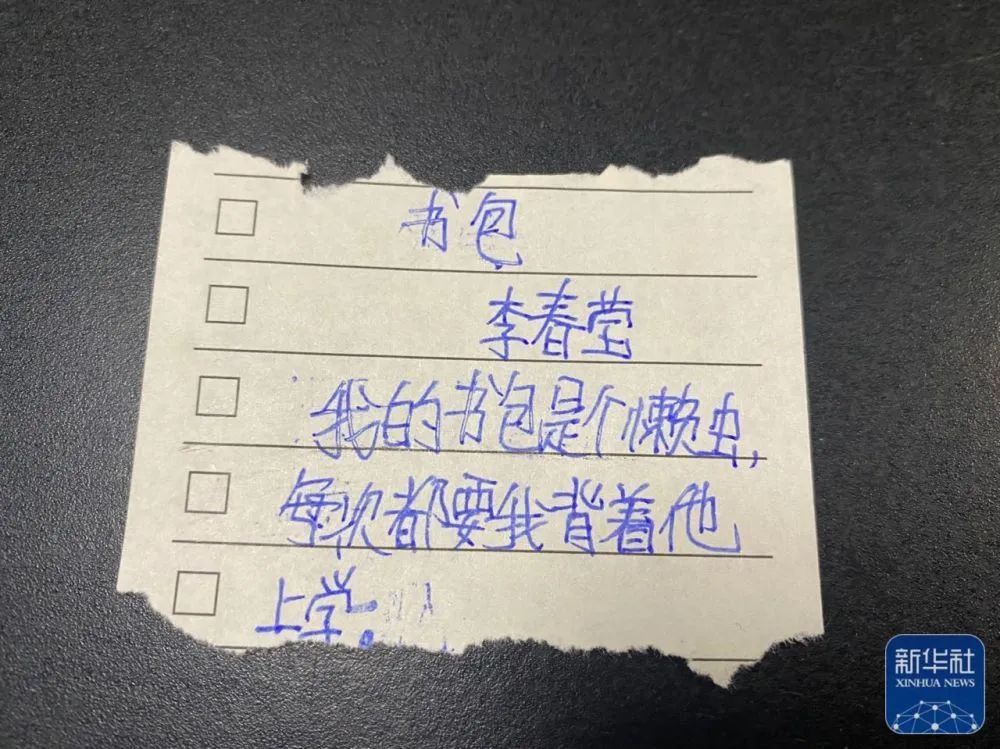 书包
李春莹
我的书包是个懒虫,
每次都要我背着他
上学。
新华社
XINHUA NEWS